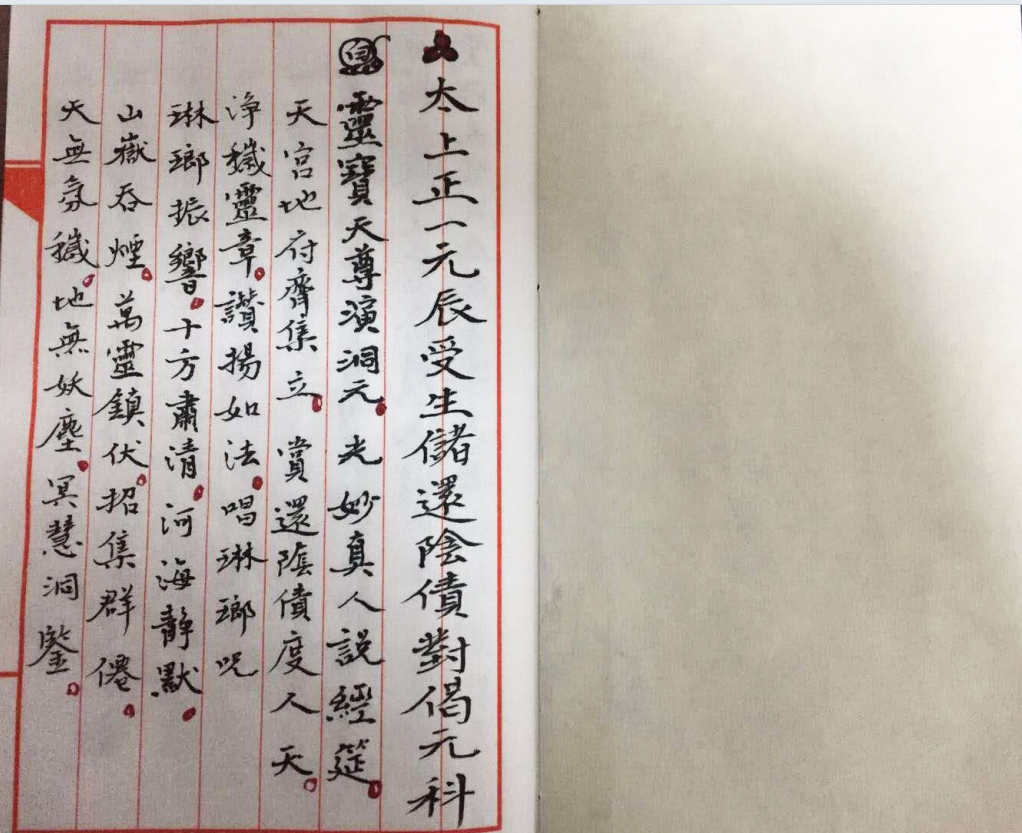 太上正一元辰受生儲還陰債對偈元科
靈寶天尊演洞元。光妙真人説經筵。
天宮地府齊集立。賞還陰債度人天。
淨穢靈章。讚揚如法。唱琳瑯呪
琳瑯振響。十方肅清。河海静默。
山嶽吞煙。萬靈鎮伏。招集群僊。
天無氛穢。地無妖塵。冥慧洞鑒。